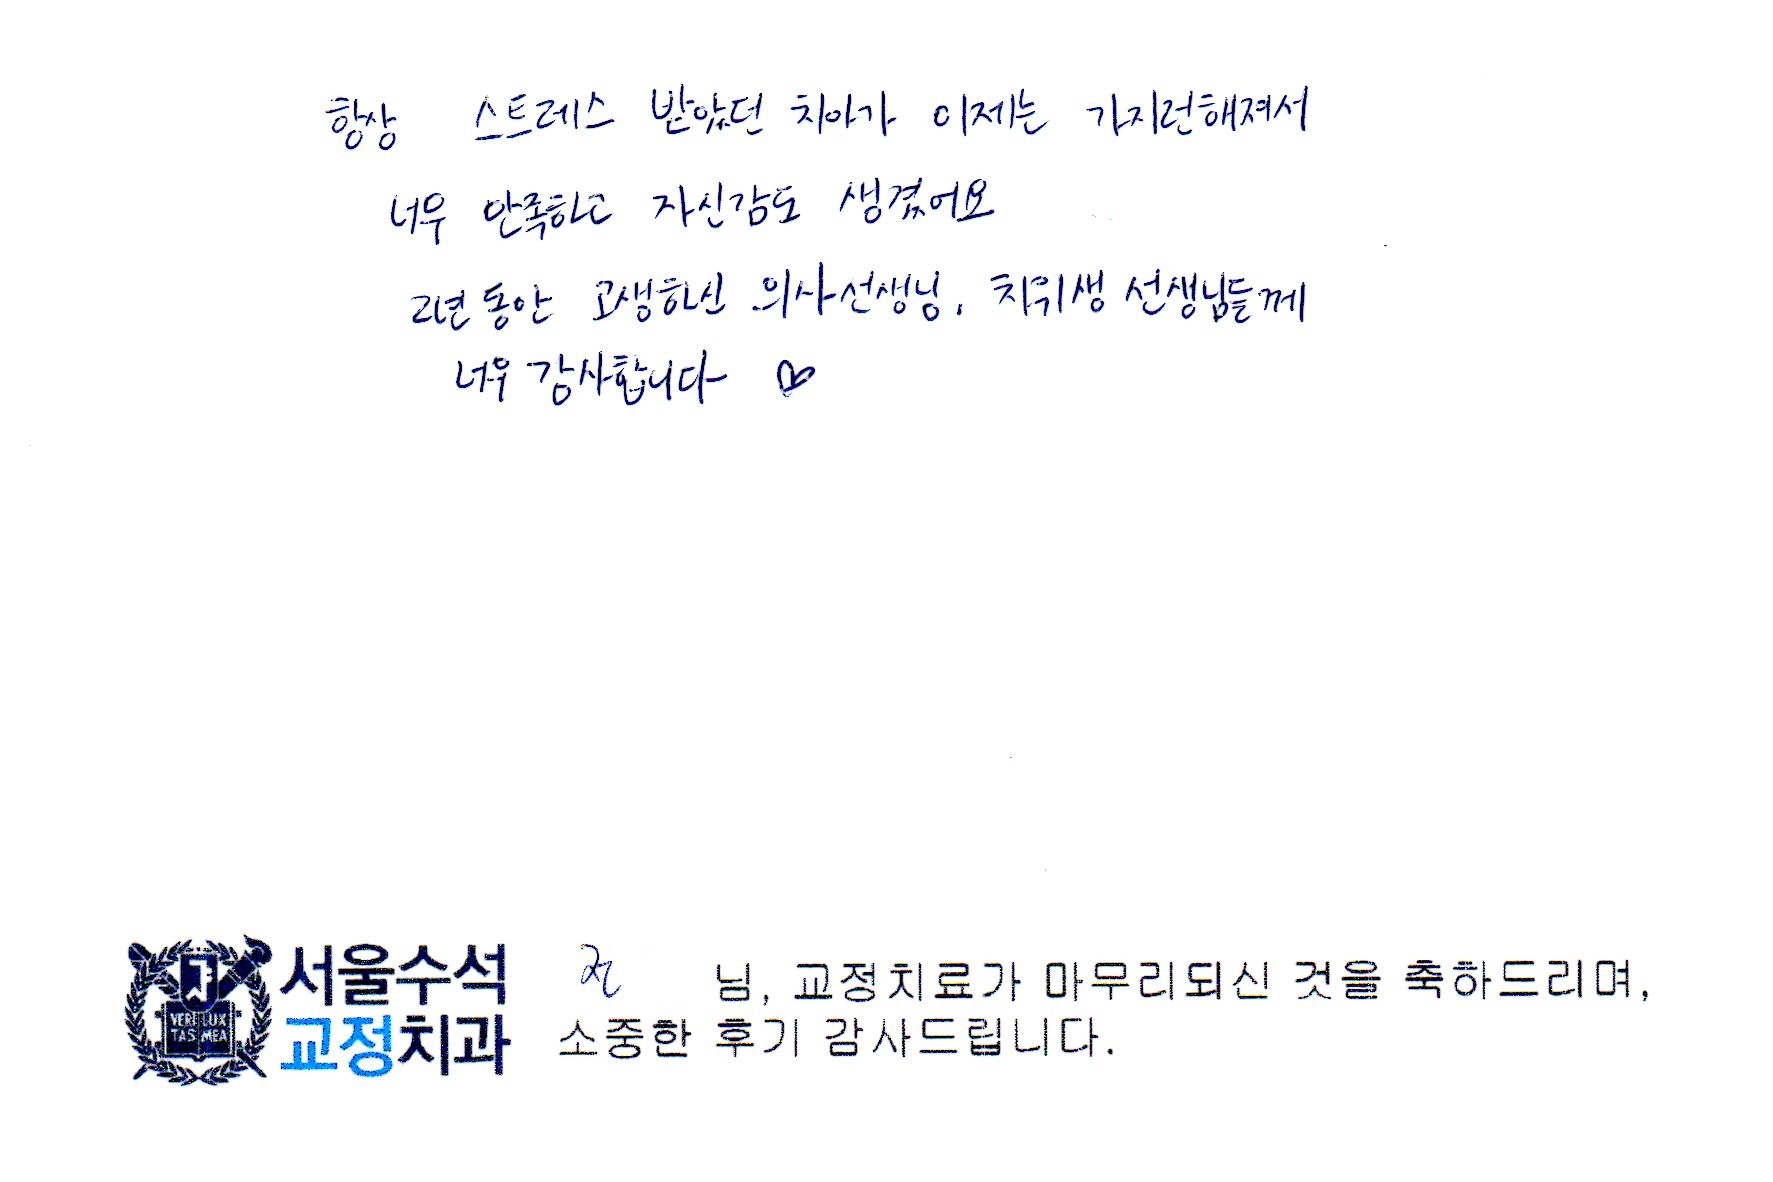 항상 스트레스 받았던 치아가 이제는 가지런해져서
너무 만족하고 자신감도 생겼어요
2년 동안 고생하신 의사선생님, 치위생 선생님들께
너무 감사합니다 ♡
VERI LUX
TAS MEA
서울수석
교정치과
전 님, 교정치료가 마무리되신 것을 축하드리며,
소중한 후기 감사드립니다.